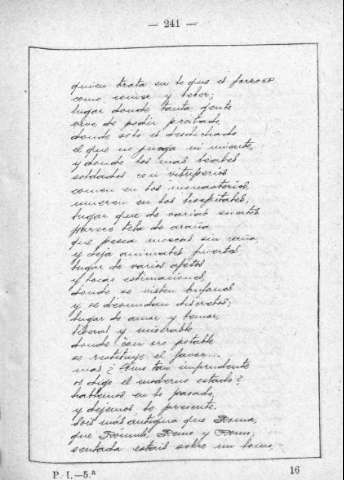 — 241 —
quien trata en lo que el
como revive y
lugar donde tanta gente
vive de pedir prestado,
donde solo es desdichado
el que no juega ni miente,
y donde los más
soldados con vituperios
comen en los monasterios,
mueren en los hospitales,
lugar que de varias suertes
parece tela de araña
que pesca moscas sin
y deja animales fuertes
lugar de varios
y locas
donde se visten
y se desnudan discretos;
lugar de amar y temer,
liberal y miserable
donde con oro potable
se restituye el favor...
mas ¿Cómo tan imprudente
os digo el moderno estado?
hablemos en lo pasado,
y dejemos lo presente.
Sois más antigua que Roma,
que Remo y
sentada estáis sobre un
P. I.—5.ª 16